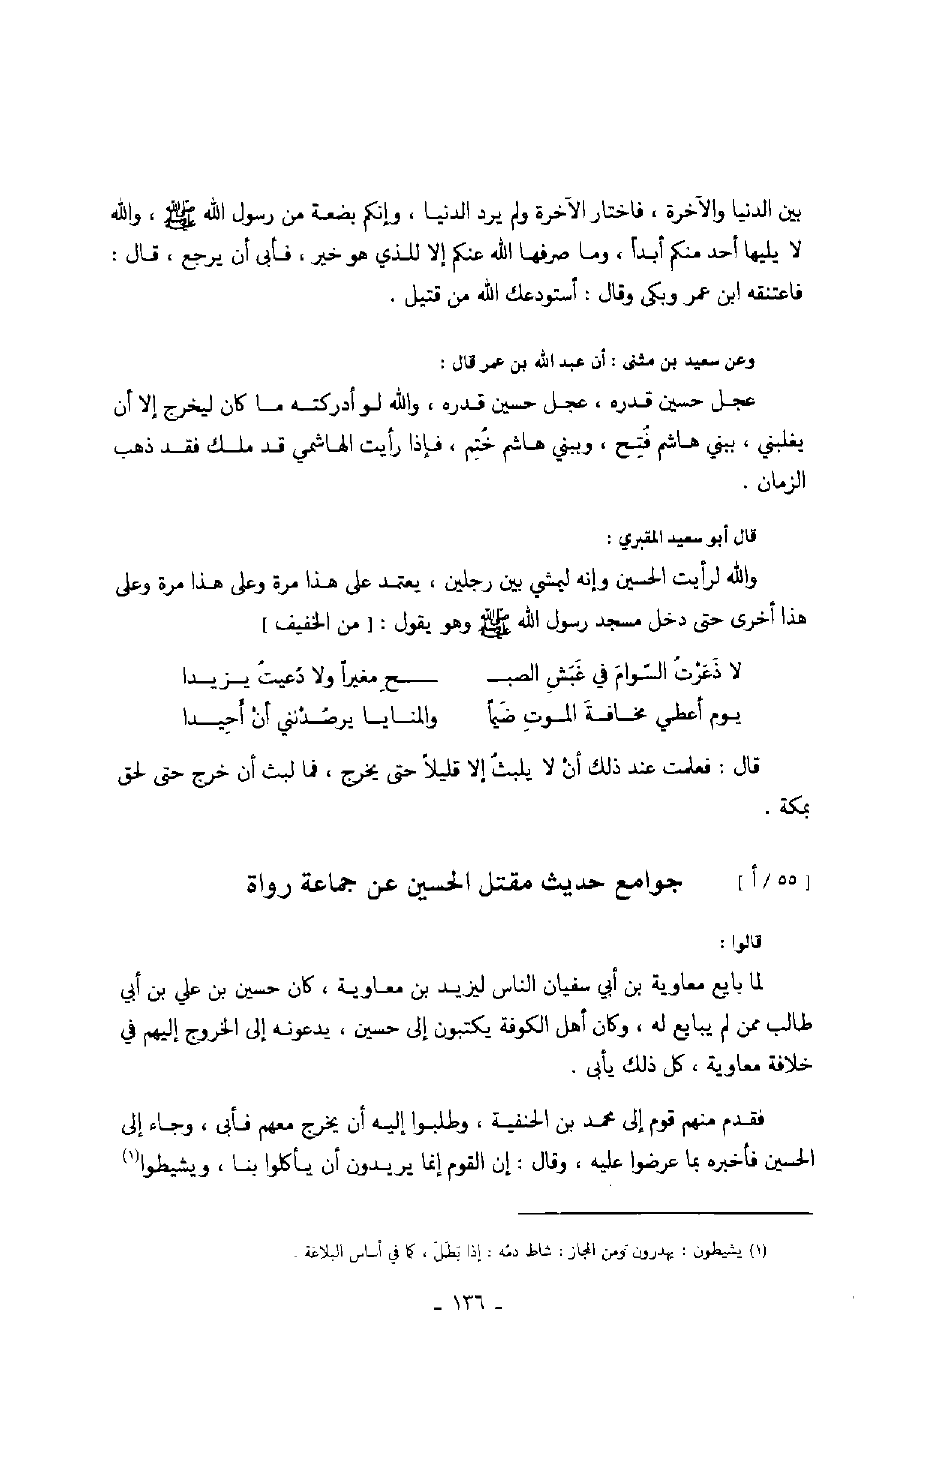 بين الدنيا والآخرة ، فاختار الآخرة ولم يرد الدنيا ، وإنكم بضعة من رسول الله ﷺ ، والله
لا يليها أحد منكم أبداً ، وما صرفها الله عنكم إلا للذي هو خير ، فأبى أن يرجع ، قال :
فاعتنقه ابن عمر وبكى وقال : أستودعك الله من قتيل .
وعن سعيد بن مثنى : أن عبد الله بن عمر قال :
عجل حسين قدره ، عجل حسين قدره ، والله لو أدركته ما كان ليخرج إلا أن
يغلبني ، ببني هاشم فُتِح ، وببني هاشم خُتِم ، فإذا رأيت الهاشمي قد ملك فقد ذهب
الزمان .
قال أبو سعيد المقبري :
والله لرأيت الحسين وإنه ليمشي بين رجلين ، يعتمد على هذا مرة وعلى هذا مرة وعلى
هذا أخرى حتى دخل مسجد رسول الله ﷺ وهو يقول : [ من الخفيف ]
لا ذَعَرْتُ السَّوامَ في غَبَشِ الصبـ ـح مغيراً ولا دُعيتُ يزيدا
يوم أعطي مخافةَ الموتِ ضَيْماً والمنايا يرصُدْنني أنْ أَحِيدا
قال : فعلمت عند ذلك أنْ لا يلبثُ إلا قليلاً حتى يخرج ، فما لبث أن خرج حتى لحق
بمكة .
[ ٥٥ / أ ] جوامع حديث مقتل الحسين عن جماعة رواة
قالوا :
لما بايع معاوية بن أبي سفيان الناس ليزيد بن معاوية ، كان حسين بن علي بن أبي
طالب ممن لم يبايع له ، وكان أهل الكوفة يكتبون إلى حسين ، يدعونه إلى الخروج إليهم في
خلافة معاوية ، كل ذلك يأبى .
فقدم منهم قوم إلى محمد بن الحنفية ، وطلبوا إليه أن يخرج معهم فأبى ، وجاء إلى
الحسين فأخبره بما عرضوا عليه ، وقال : إن القوم إنما يريدون أن يأكلوا بنا ، ويشيطوا(١)
(١) يشيطون : يهدرون ومن المجاز : شاط دمُه : إذا بَطَلَ ، كما في أساس البلاغة .
- ١٣٦ -